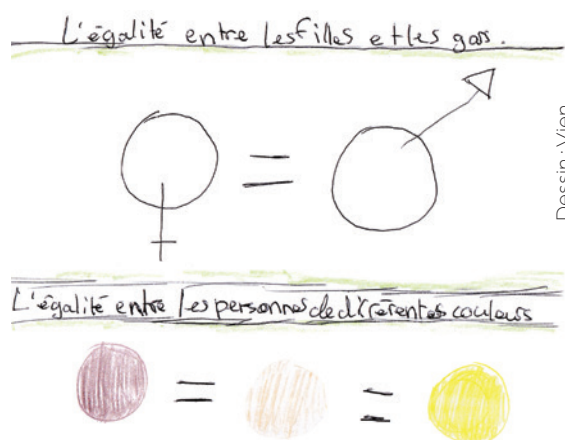 L'égalité entre les filles et les gars.
Dessin : Vien
L'égalité entre les personnes de différentes couleurs